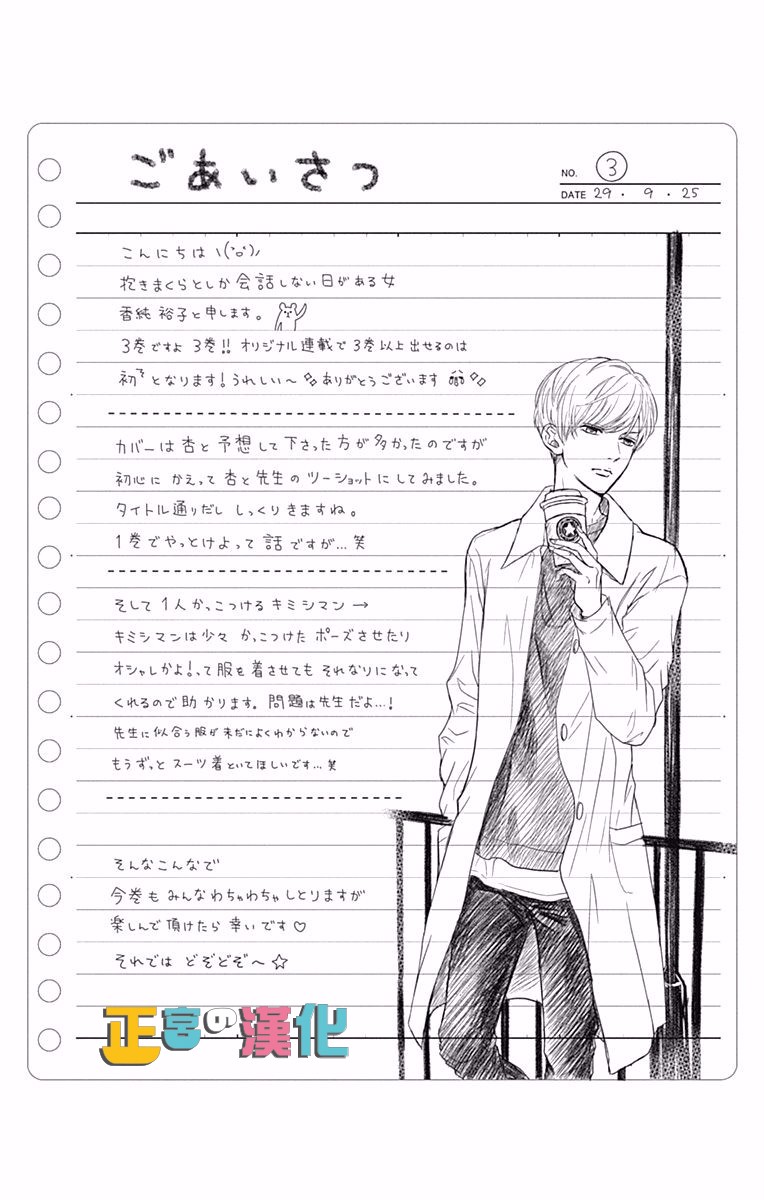 ごあいさつ
NO. ③
DATE 29・9・25
こんにちは ヽ(`o´)ﾉ
抱きまくらとしか会話しない日がある女
香純 裕子と申します。
3巻ですよ 3巻!! オリジナル連載で3巻以上出せるのは
初となります！うれしい〜 ありがとうございます
カバーは杏と予想して下さった方が多かったのですが
初心にかえって杏と先生のツーショットにしてみました。
タイトル通りだし しっくりきますね。
1巻でやっとけよって話ですが…笑
そして1人かっこつけるキミシマン→
キミシマンは少々かっこつけたポーズさせたり
オシャレかよ！って服を着させてもそれなりになって
くれるので助かります。問題は先生だよ…！
先生に似合う服が未だによくわからないので
もうずっとスーツ着といてほしいです…笑
そんなこんなで
今巻もみんなわちゃわちゃしとりますが
楽しんで頂けたら幸いです♡
それでは どぞどぞ〜☆
正宮の漢化